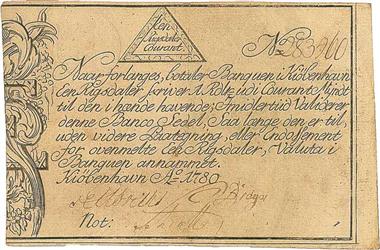 Een
Rigsdaler
Courant.
No
Naar forlanges, betaler Banquen i Kiøbenhavn
Een Rigsdaler, skriver 1. Rdlr, udi Courant Mynt
til den i hænde havende; Imidlertiid Validerer
denne Banco-Sedel, saa lange den er til,
uden videre Paategning, eller Endossement
for ovenmelte Een Rigsdaler, Valuta i
Banquen annammet.
Kiøbenhavn Ao. 1780.
Not: